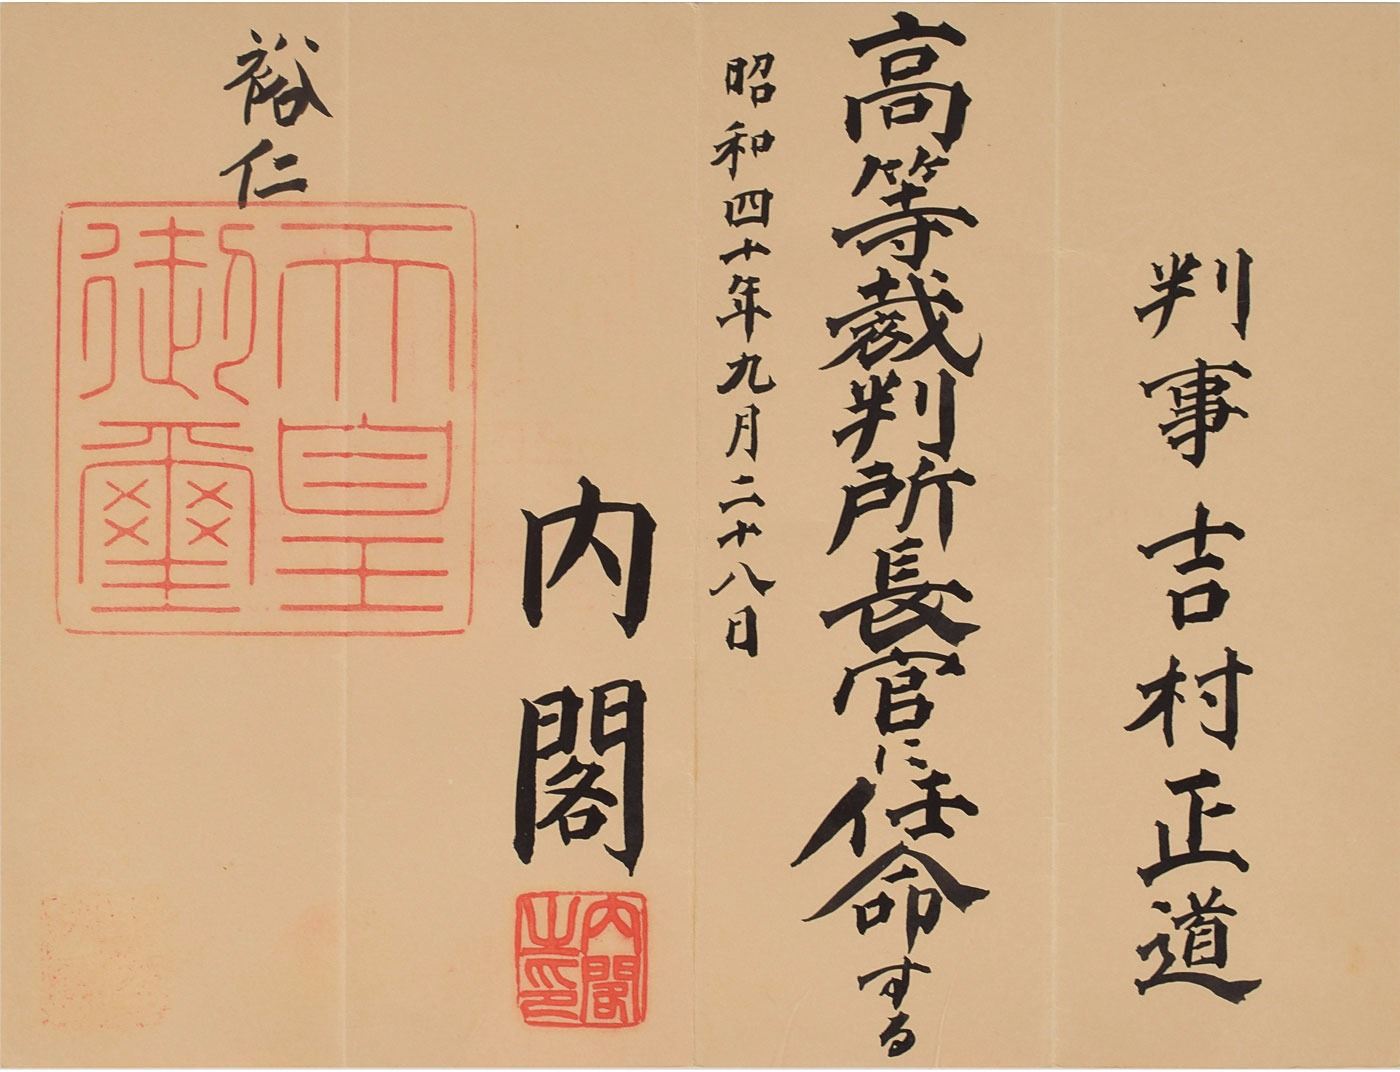 判事吉村正道
高等裁判所長官に任命する
昭和四十年九月二十八日
内閣
内閣之印
裕仁
天皇御璽